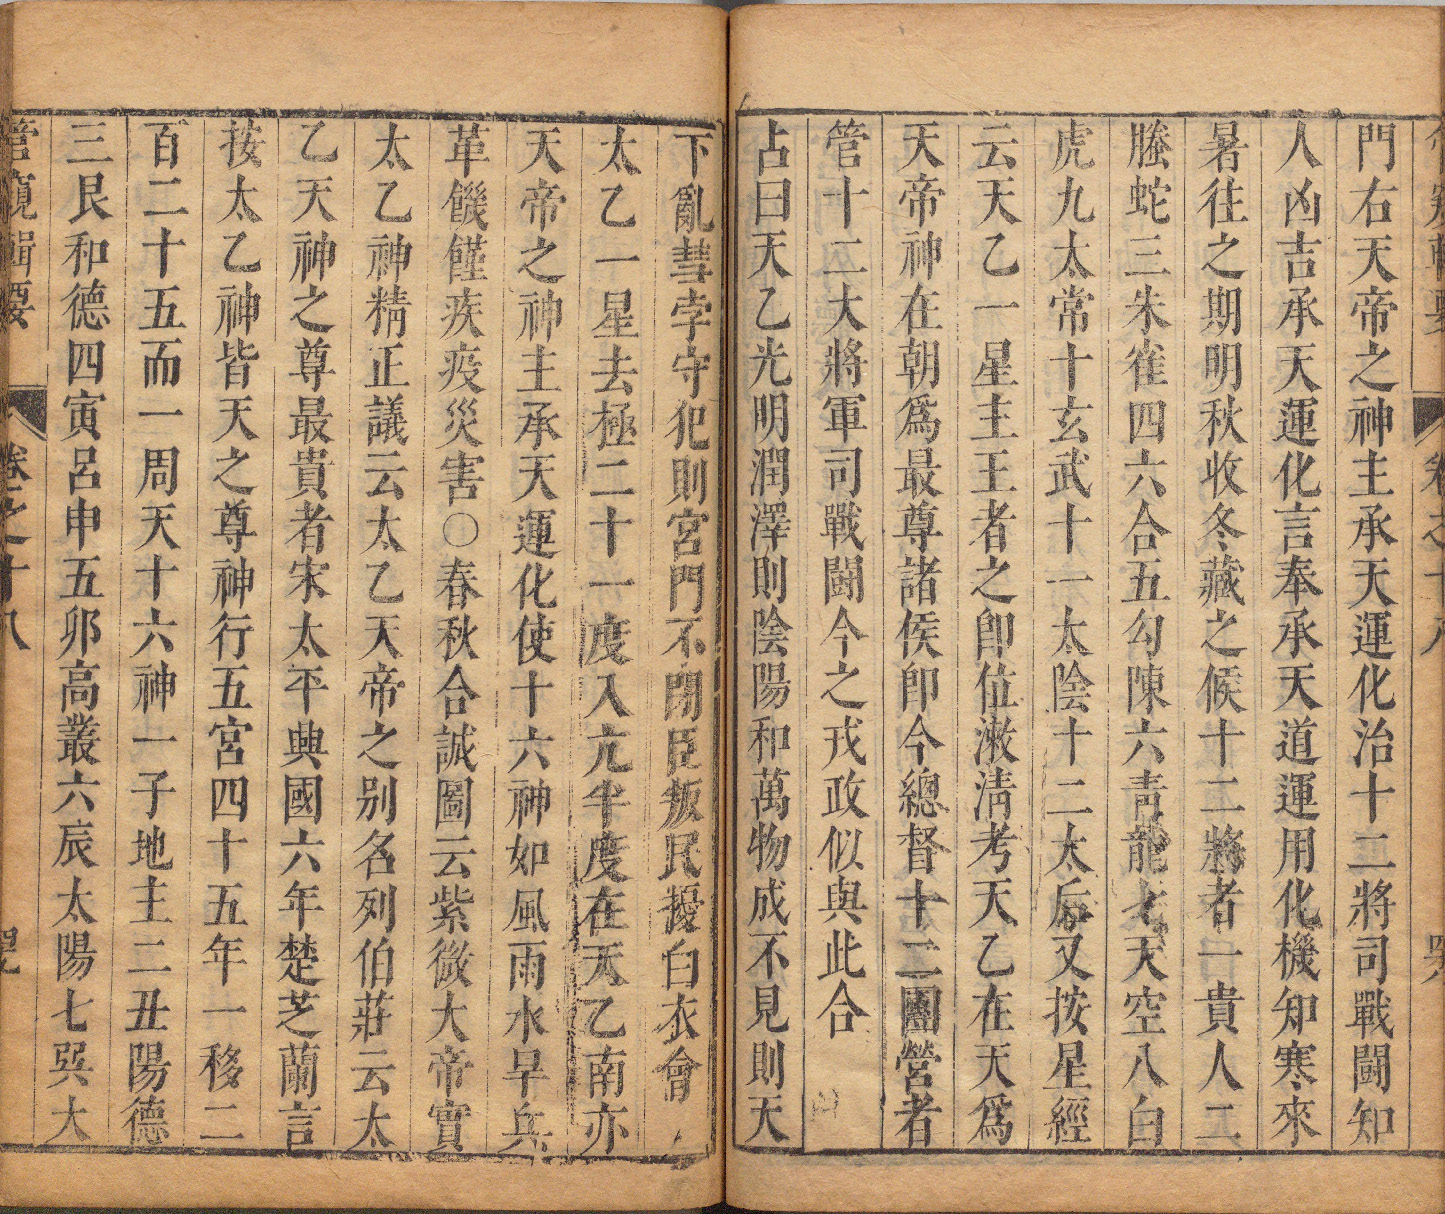 管窺輯要 卷之十八
門右天帝之神主承天運化治十二將司戰鬪知
人凶吉承天運化言奉承天道運用化機知寒來
暑往之期明秋收冬藏之候十二將者一貴人二
螣蛇三朱雀四六合五勾陳六青龍七天空八白
虎九太常十玄武十一太陰十二太后又按星經
云天乙一星主王者之卽位漖淸考天乙在天爲
天帝神在朝爲最尊諸侯卽今總督十二團營者
管十二大將軍司戰鬪今之戎政似與此合
占曰天乙光明潤澤則陰陽和萬物成不見則天
下亂彗孛守犯則宮門不閉臣叛民擾白衣會
太乙一星去極二十一度入亢半度在天乙南亦
天帝之神主承天運化使十六神如風雨水旱兵
革饑饉疾疫災害〇春秋合誠圖云紫微大帝實
太乙神精正議云太乙天帝之别名列伯莊云太
乙天神之尊最貴者宋太平興國六年楚芝蘭言
按太乙神皆天之尊神行五宮四十五年一移二
百二十五而一周天十六神一子地主二丑陽德
三艮和德四寅呂申五卯高叢六辰太陽七巽大
管窺輯要 卷之十八